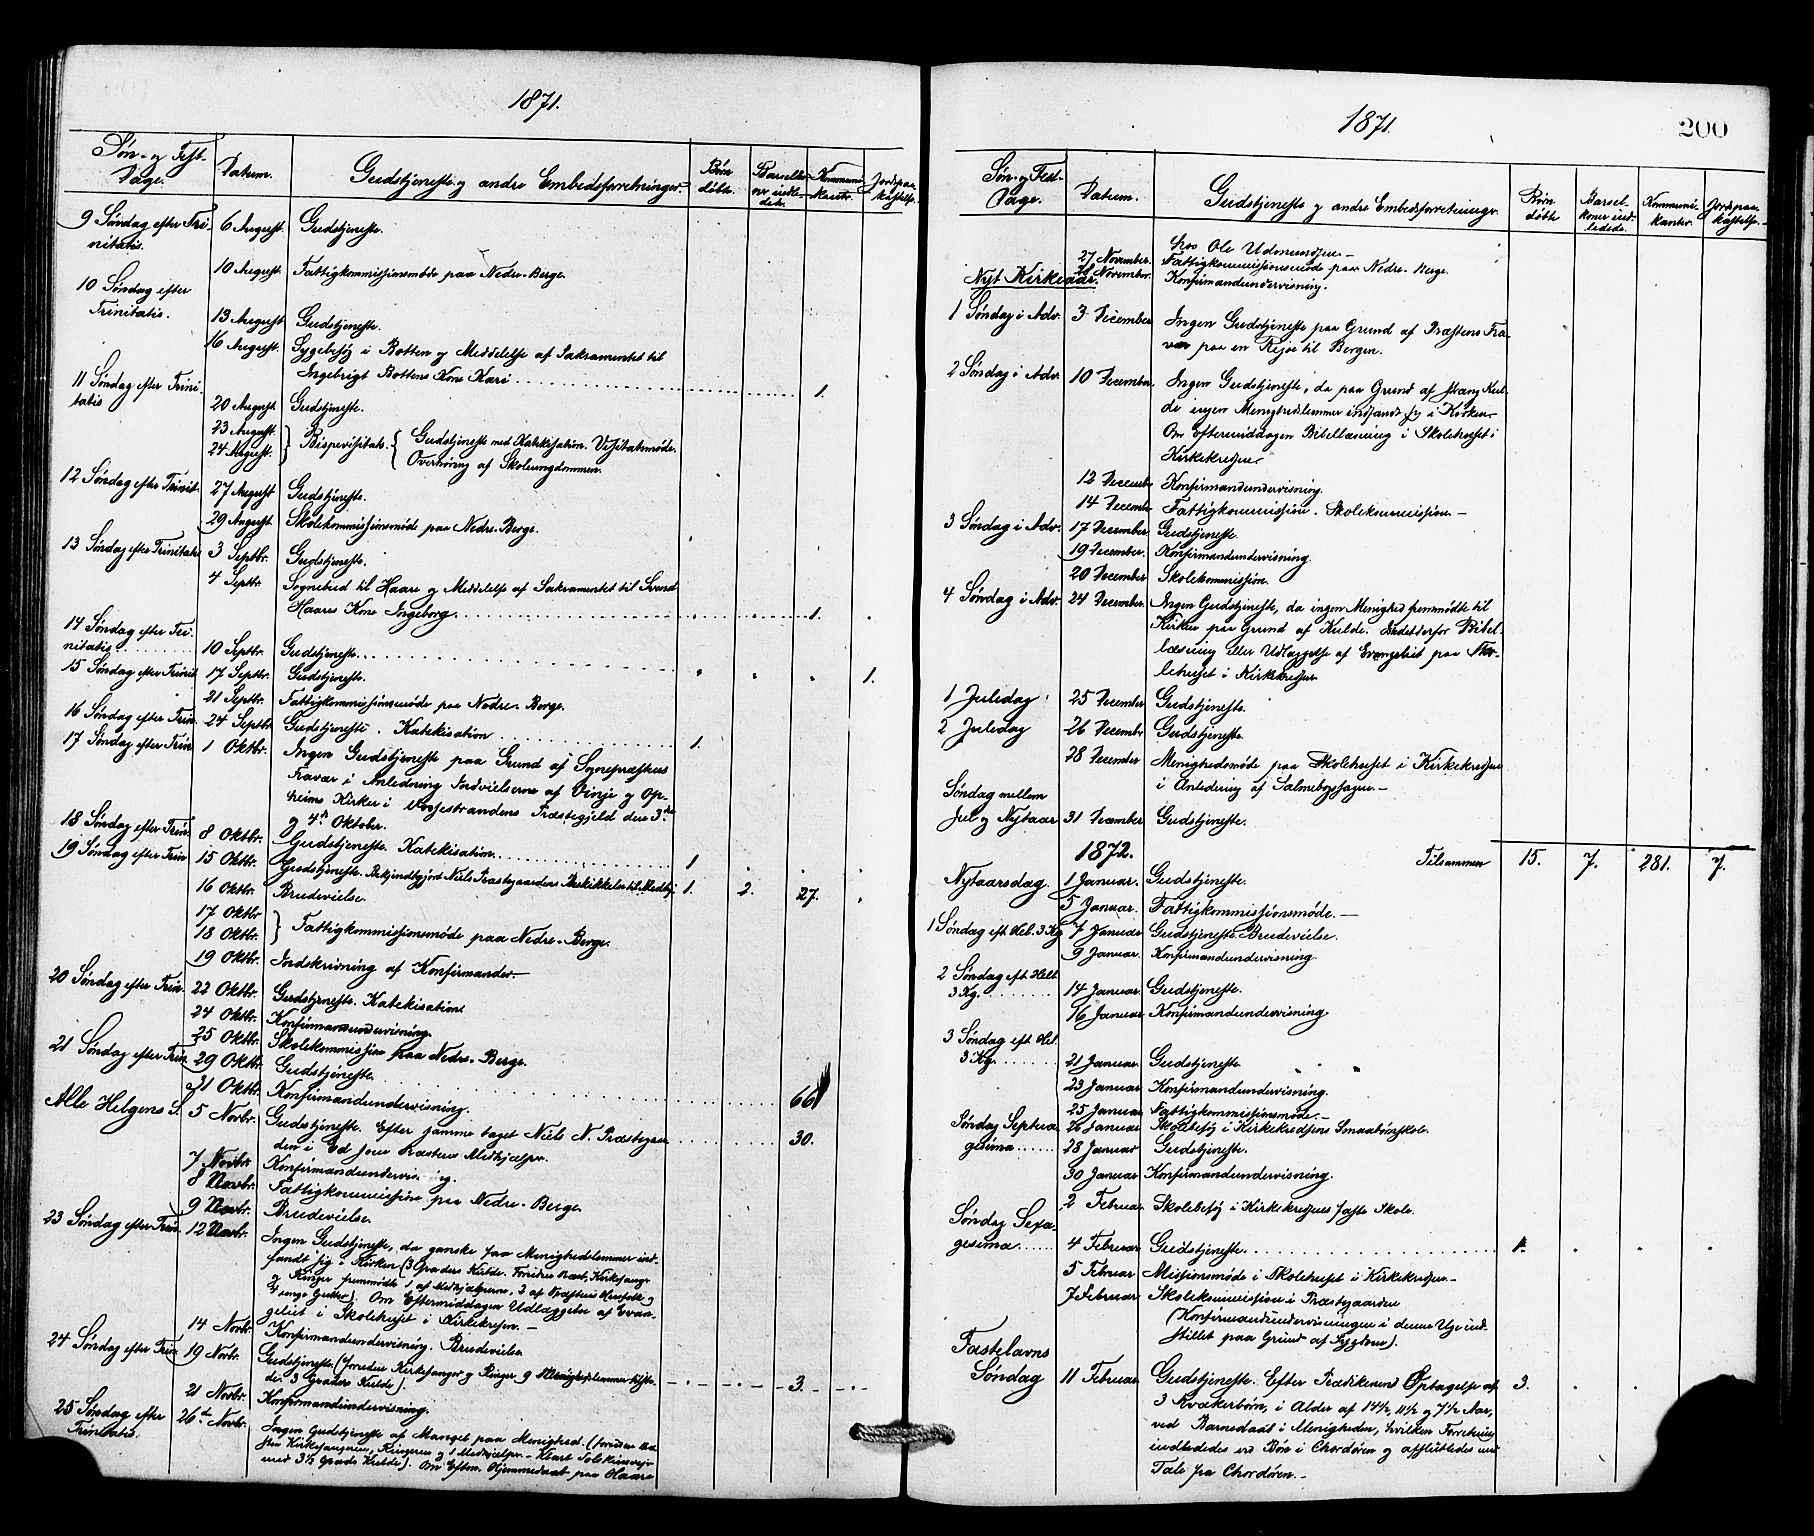 1871.
Søn- og Fest-
Dage.
Datum.
Gudstjeneste og andre Embedsforretninger.
Børn
døbte
Barselko-
ner indle-
dede.
Kommuni-
kanter.
Jordpaa-
kastelse.
9 Søndag efter Tri- 6 August. Gudstjeneste.
nitatis.
10 August. Fattigkommissionsmøde paa Nedre-Berge.
10 Søndag efter
Trinitatis. 13 August. Gudstjeneste.
16 August. Sygebesøg i Botten og Meddelelse af Sakramentet til
Ingebrigt Bottens Kone Kari . . . 1.
11 Søndag efter Trini-
tatis 20 August Gudstjeneste.
23 August.
24 August. } Bispevisitats. { Gudstjeneste med Katekisation. Visitatsmøde.
Overhøring af Skoleungdommen.
12 Søndag efter Trinit. 27 August Gudstjeneste.
29 August. Skolekommissionsmøde paa Nedre-Berge.
13 Søndag efter Trinitatis 3 Septbr. Gudstjeneste.
4 Septbr. Sognebud til Haare og Meddelelse af Sakramentet til Svend
Haares Kone Ingeborg . . . 1.
14 Søndag efter Tri-
nitatis . . . 10 Septbr. Gudstjeneste . . .
15 Søndag efter Trinit 17 Septbr. Gudstjeneste. 1.
21 Septbr. Fattigkommissionsmøde paa Nedre-Berge.
16 Søndag efter Trin. 24 Septbr. Gudstjeneste. Katekisation . . . 1.
17 Søndag efter Trin. 1 Oktbr. Ingen Gudstjeneste paa Grund af Sognepræstens
Fravær i Anledning Indvielserne af Vinje og Op-
heims Kirker i Vossestrandens Præstegjeld den 3die
og 4de Oktober.
18 Søndag efter Trin. 8 Oktbr. Gudstjeneste. Katekisation . . . 1
19 Søndag efter Trin 15 Oktbr. Gudstjeneste. Bekjendtgjord Niels Præstegaardens Beskikkelse til Medhj. 1. 2. 27.
16 Oktbr. Brudevielse.
17 Oktbr
18 Oktbr. } Fattigkommissionsmøde paa Nedre-Berge.
19 Oktbr. Indskrivning af Konfirmander.-
20 Søndag efter Trin. 22 Oktbr. Gudstjeneste. Katekisation.
24 Oktbr. Konfirmandundervisning.
25 Oktbr. Skolekommission paa Nedre-Berge.
21 Søndag efter Trin 29 Oktbr. Gudstjeneste . . . 66
31 Oktbr. Konfirmandundervisning.
Alle Helgens S. 5 Novbr. Gudstjeneste. Efter samme taget Niels N. Præstegaar- 30.
den i Ed som Præstens Medhjælper.
7 Novbr. Konfirmandundervisning.
8 Novbr. Fattigkommission paa Nedre-Berge.
9 Novbr. Brudevielse.
23 Søndag efter Trin. 12 Novbr. Ingen Gudstjeneste, da ganske faa Menighedslemmer ind-
fandt sig i Kirken (3 Graders Kulde. Foruden Præst, Kirkesanger
og Ringer fremmødte 1 af Medhjælperne, 2 af Præstens Husfolk og
unge Gutter). Om Eftermiddagen Udlæggelse af Evan-
geliet i Skolehuset i Kirkekredsen.-
14 Novbr. Konfirmandundervisning. Brudevielse.
24 Søndag efter Trin. 19 Novbr. Gudstjeneste (foruden Kirkesanger og Ringer 9 Menighedslemmer tilste-
de. 3 Graders Kulde). 3.
21 Novbr. Konfirmandundervisning.
25 Søndag efter 26de Novbr. Ingen Gudstjeneste af Mangel paa Menighed. (foruden Præ-
Trinitatis. sten Kirkesangeren, Ringeren og 1 Medhjælper.- Klart Solskinsvejr
med 3½ Grads Kulde). Om Efterm. Hjemmedaab paa Haare
1871.
200
Søn- og Fest-
Dage.
Datum.
Gudstjeneste og andre Embedsforretninger.
Børn
døbte
Barsel-
koner ind-
ledede.
Kommuni-
kanter.
Jordpaa-
kastelse.
hos Ole Udmundsen.-
27 November. Fattigkommissionsmøde paa Nedre-Berge.
Nyt Kirkeaar. 28 November. Konfirmandundervisning.
1 Søndag i Adv. 3 December Ingen Gudstjeneste paa Grund af Præstens Fra-
vær paa en Rejse til Bergen.
2 Søndag i Adv. 10 December. Ingen Gudstjeneste, da paa Grund af stræng Kul-
de ingen Menighedslemmer indfandt sig i Kirken.
Om Eftermiddagen Bibellæsning i Skolehuset i
Kirkekredsen.
12 Decembr Konfirmandundervisning.
14 Decembr Fattigkommission. Skolekommission.-
3 Søndag i Adv. 17 December. Gudstjeneste.
19 December. Konfirmandundervisning.
20 December Skolekommission.
4 Søndag i Adv. 24 December. Ingen Gudstjeneste, da ingen Menighed fremmødte til
Kirken paa Grund af Kulde. Istedetderfor Bibel-
læsning eller Udlæggelse af Evangeliet paa Sko-
lehuset i Kirkekredsen
1 Juledag 25 December Gudstjeneste.
2 Juledag 26 Decembr Gudstjeneste.
28 December Menighedsmøde paa Skolehuset i Kirkekredsen
i Anledning af Salmebogssagen.-
Søndag mellem
Jul og Nytaar 31 December Gudstjeneste.
1872. Tilsammen 15. 7. 281. 7.
Nytaarsdag. 1 Januar. Gudstjeneste.
5 Januar. Fattigkommissionsmøde.-
1 Søndag eft. Hel. 3 Kg 7 Januar Gudstjeneste. Brudevielse.
9 Januar. Konfirmandundervisning.
2 Søndag eft. Hell.
3 Kg. . . . 14 Januar. Gudstjeneste.
16 Januar Konfirmandundervisning
3 Søndag eft Hel.
3 Kg. . . . 21 Januar. Gudstjeneste.
23 Januar. Konfirmandundervisning.
25 Januar. Fattigkommissionsmøde.-
Søndag Septua- 26 Januar. Skolebesøg i Kirkekredsens Smaabørnsskole.
gesima . . . 28 Januar Gudstjeneste.
30 Januar. Konfirmandundervisning.
2 Februar. Skolebesøg i Kirkekredsens faste Skole.
Søndag Sexa-
gesima . . . 4 Februar Gudstjeneste . . . 1.
5 Februar Missionsmøde i Skolehuset i Kirkekredsen.-
7 Februar. Skolekommission i Præstegaarden
(Konfirmandundervisningen i denne Uge ind-
stillet paa Grund af Sygdom).
Fastelavns
Søndag 11 Februar. Gudstjeneste. Efter Prædikenen Optagelse af 3.
3 Kvækerbørn, i Alder af 14½, 11½ og 7½ Aar,
ved Barnedaab i Menigheden, hvilken Forretning
indlededes ved Bøn i Chordøren og afsluttedes med
Tale fra Chordøren.-